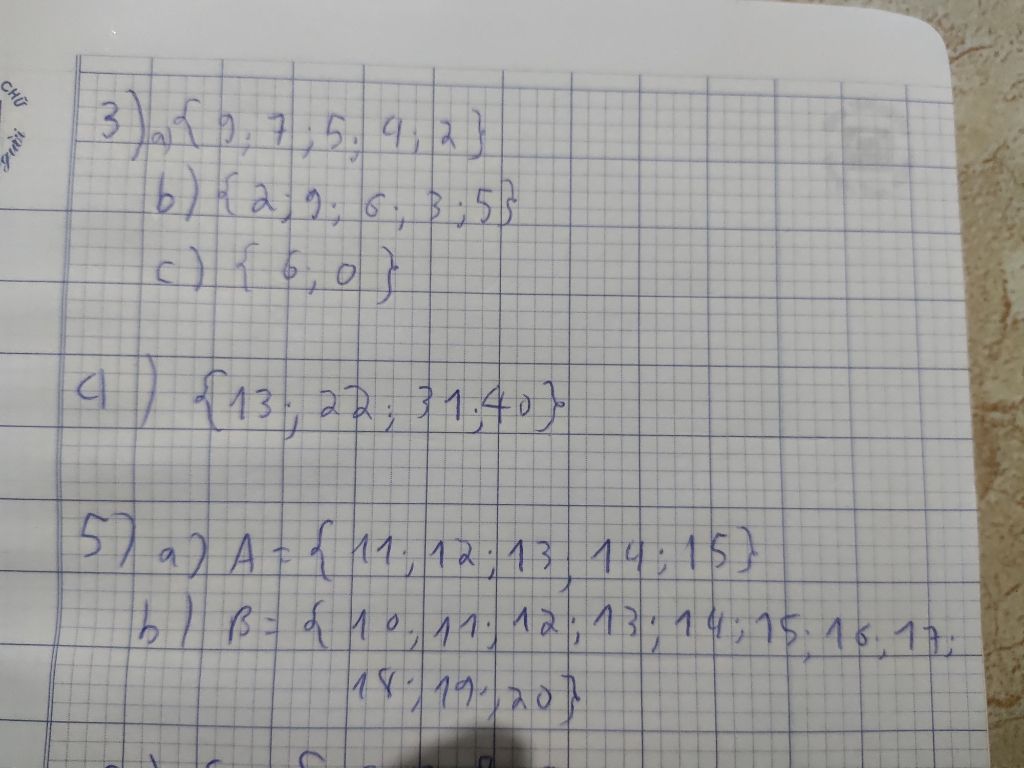 chữ
3) a) { 9; 7; 5; 4; 2 }
b) { 2; 9; 6; 3; 5 }
c) { 6; 0 }
4) { 13; 22; 31; 40 }
5) a) A = { 11; 12; 13, 14; 15 }
b) B = { 10; 11; 12; 13; 14; 15; 16; 17;
18; 19; 20 }